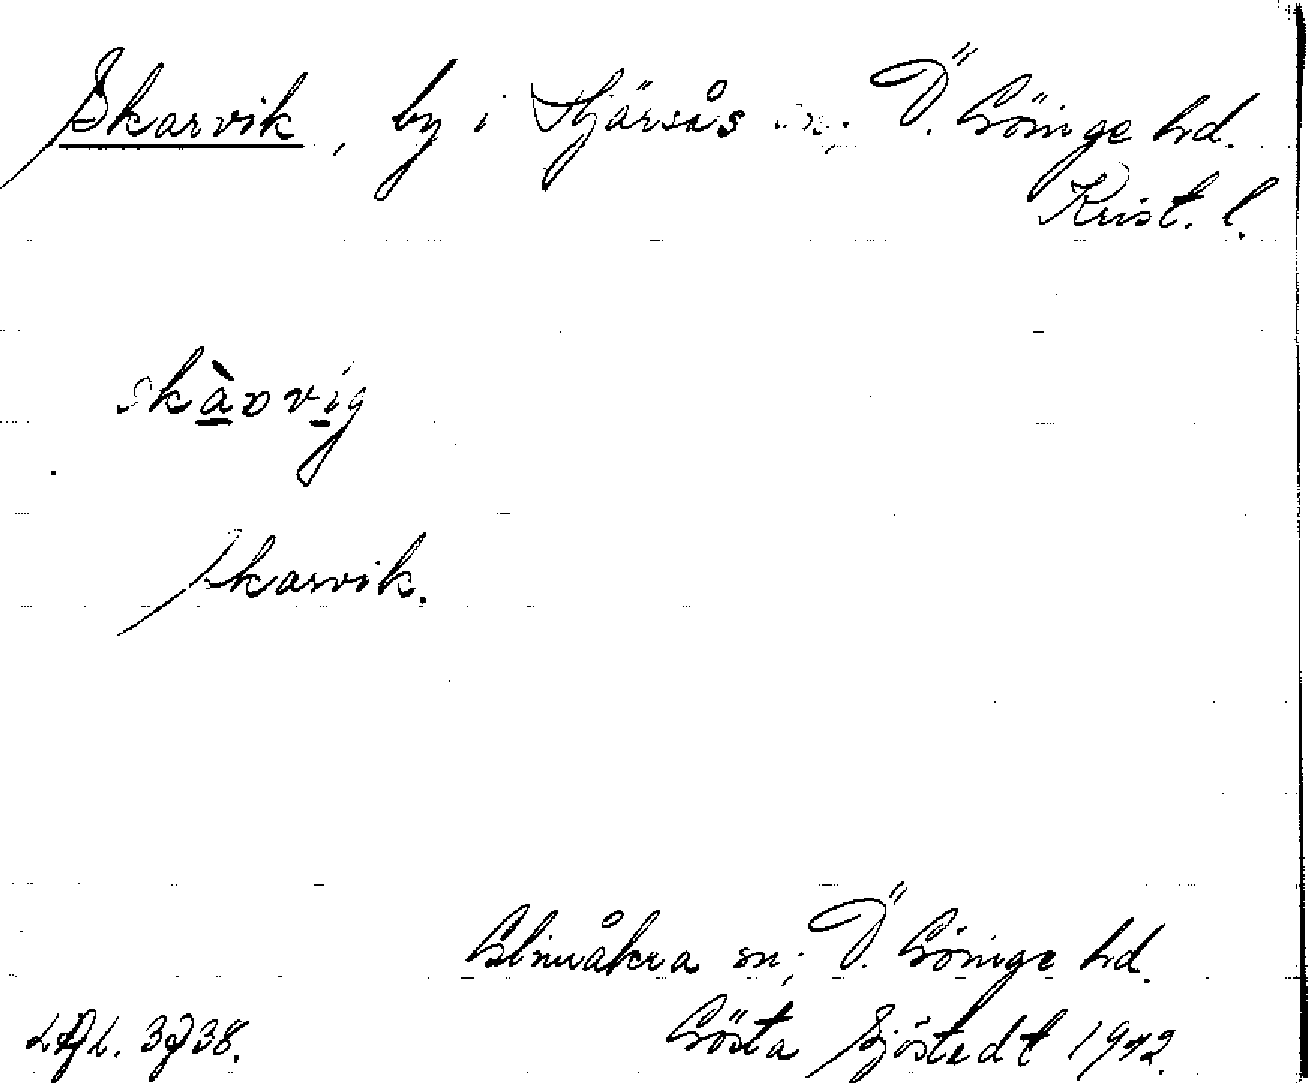 Skarvik, by i Hjärsås sn; Ö. Göinge hd.
Krist. l.
skàrvig
Skarvik.
Glimåkra sn; Ö. Göinge hd.
Gösta Sjöstedt 1942.